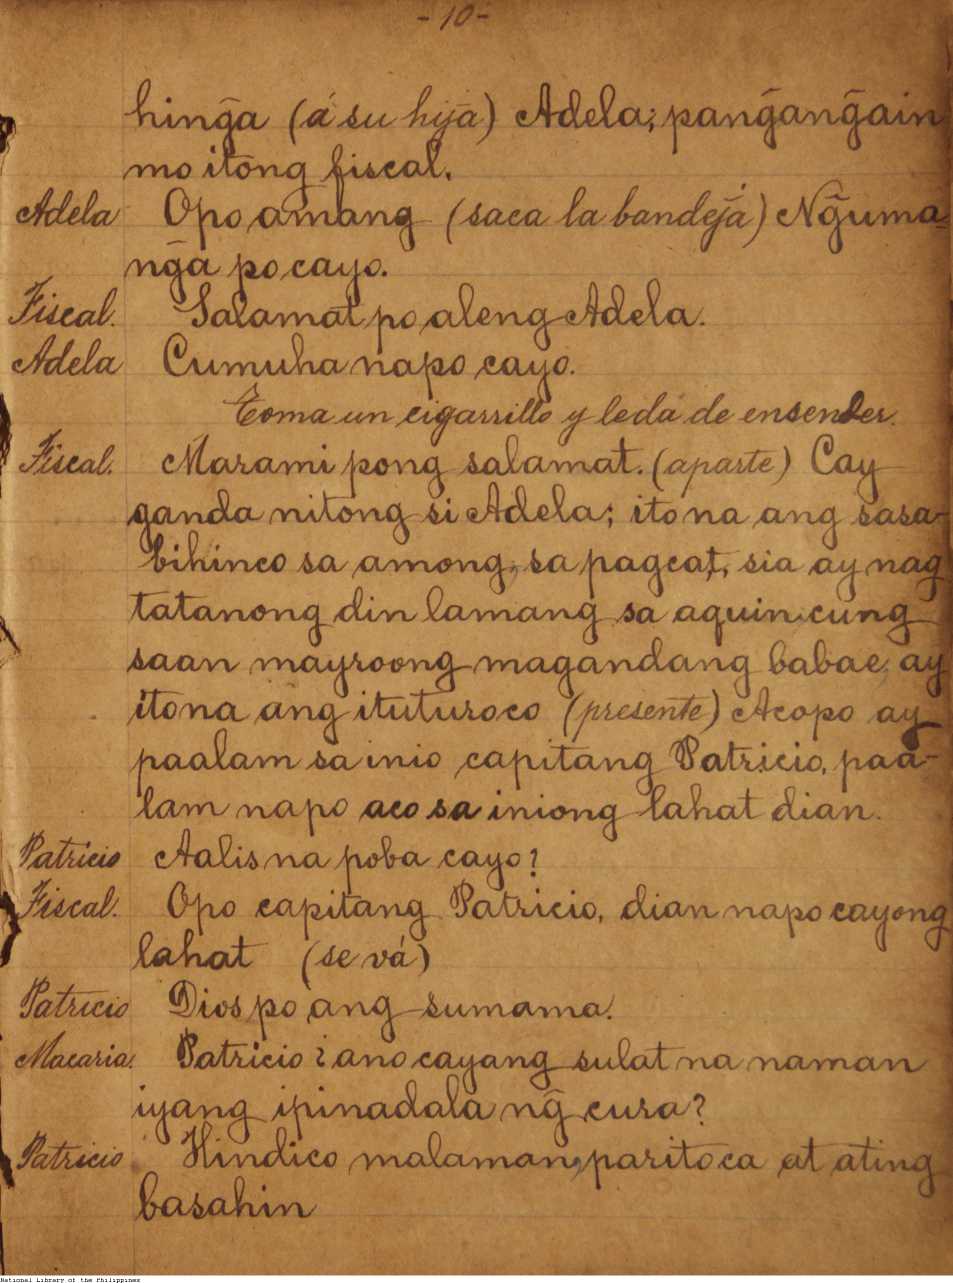 - 10 -
hing̃a (á su hija) Adela; pang̃ang̃ain
mo itong fiscal.
Adela Opo amang (saca la bandeja) Ng̃uma-
ng̃a po cayo.
Fiscal. Salamat po aleng Adela.
Adela Cumuha napo cayo.
Toma un cigarrillo y le da de ensender.
Fiscal. Marami pong salamat. (aparte) Cay
ganda nitong si Adela; ito na ang sasa-
bihinco sa among, sa pagcat, sia ay nag
tatanong din lamang sa aquin cung
saan mayroong magandang babae, ay
itona ang ituturoco (presente) Acopo ay
paalam sa inio capitang Patricio, paa-
lam napo aco sa iniong lahat dian.
Patricio Aalis na poba cayo?
Fiscal. Opo capitang Patricio, dian napo cayong
lahat (se vá)
Patricio Dios po ang sumama.
Macaria. Patricio ¿ano cayang sulat na naman
iyang ipinadala ng̃ cura?
Patricio Hindico malaman, paritoca at ating
basahin
National Library of the Philippines